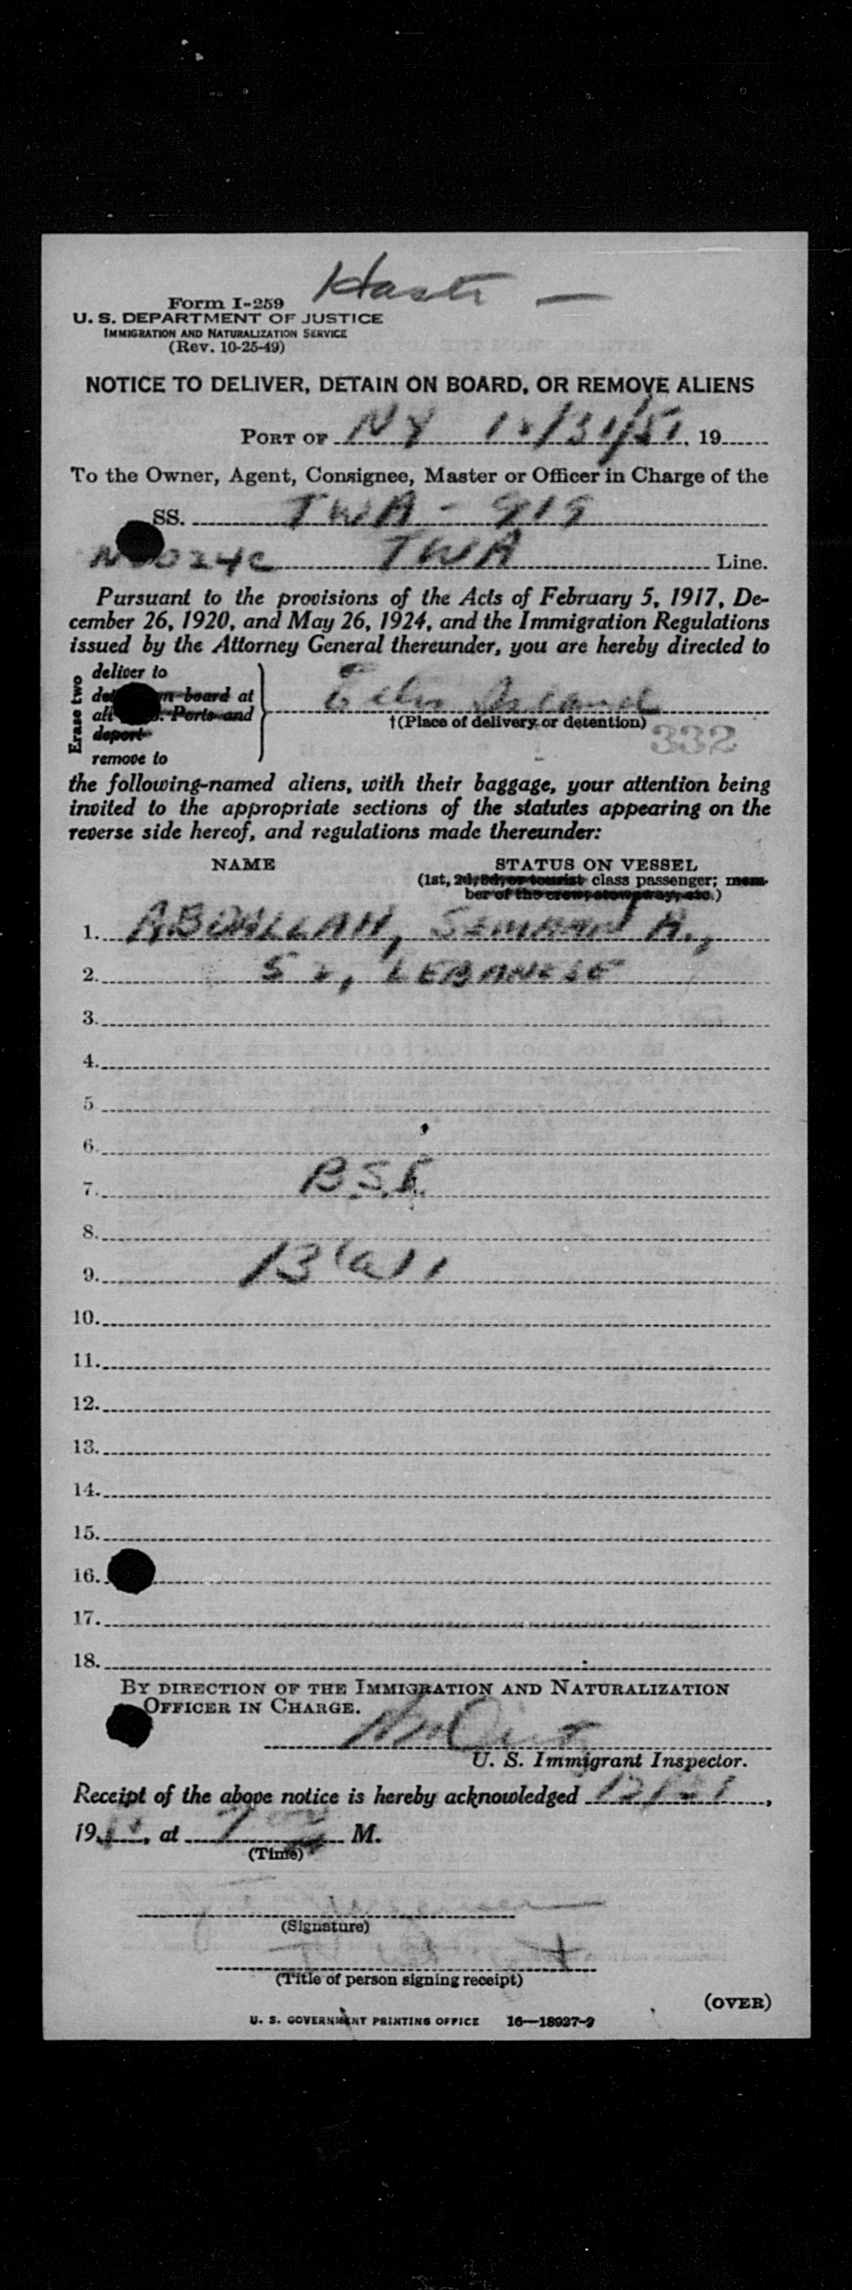 Haste —
Form I-259
U. S. DEPARTMENT OF JUSTICE
IMMIGRATION AND NATURALIZATION SERVICE
(Rev. 10-25-49)
NOTICE TO DELIVER, DETAIN ON BOARD, OR REMOVE ALIENS
PORT OF NY 12/31/51, 19
To the Owner, Agent, Consignee, Master or Officer in Charge of the
SS. TWA - 919
024C TWA Line.
Pursuant to the provisions of the Acts of February 5, 1917, De-
cember 26, 1920, and May 26, 1924, and the Immigration Regulations
issued by the Attorney General thereunder, you are hereby directed to
Erase two
deliver to
on board at
all Ports and
deport
remove to
Ellis Island
†(Place of delivery or detention)
332
the following-named aliens, with their baggage, your attention being
invited to the appropriate sections of the statutes appearing on the
reverse side hereof, and regulations made thereunder:
NAME STATUS ON VESSEL
(1st, 2d, 3d, or tourist class passenger; mem-
ber of the crew, stowaway, etc.)
1. ABDALLAH, SEMAAN A.,
2. 52, LEBANESE
3.
4.
5
6.
7. B.S.I.
8.
9. 13(a)1
10.
11.
12.
13.
14.
15.
16.
17.
18.
BY DIRECTION OF THE IMMIGRATION AND NATURALIZATION
OFFICER IN CHARGE.
U. S. Immigrant Inspector.
Receipt of the above notice is hereby acknowledged 12/31,
19, at 7 M.
(Time)
(Signature)
(Title of person signing receipt)
(OVER)
U. S. GOVERNMENT PRINTING OFFICE 16—18927-2